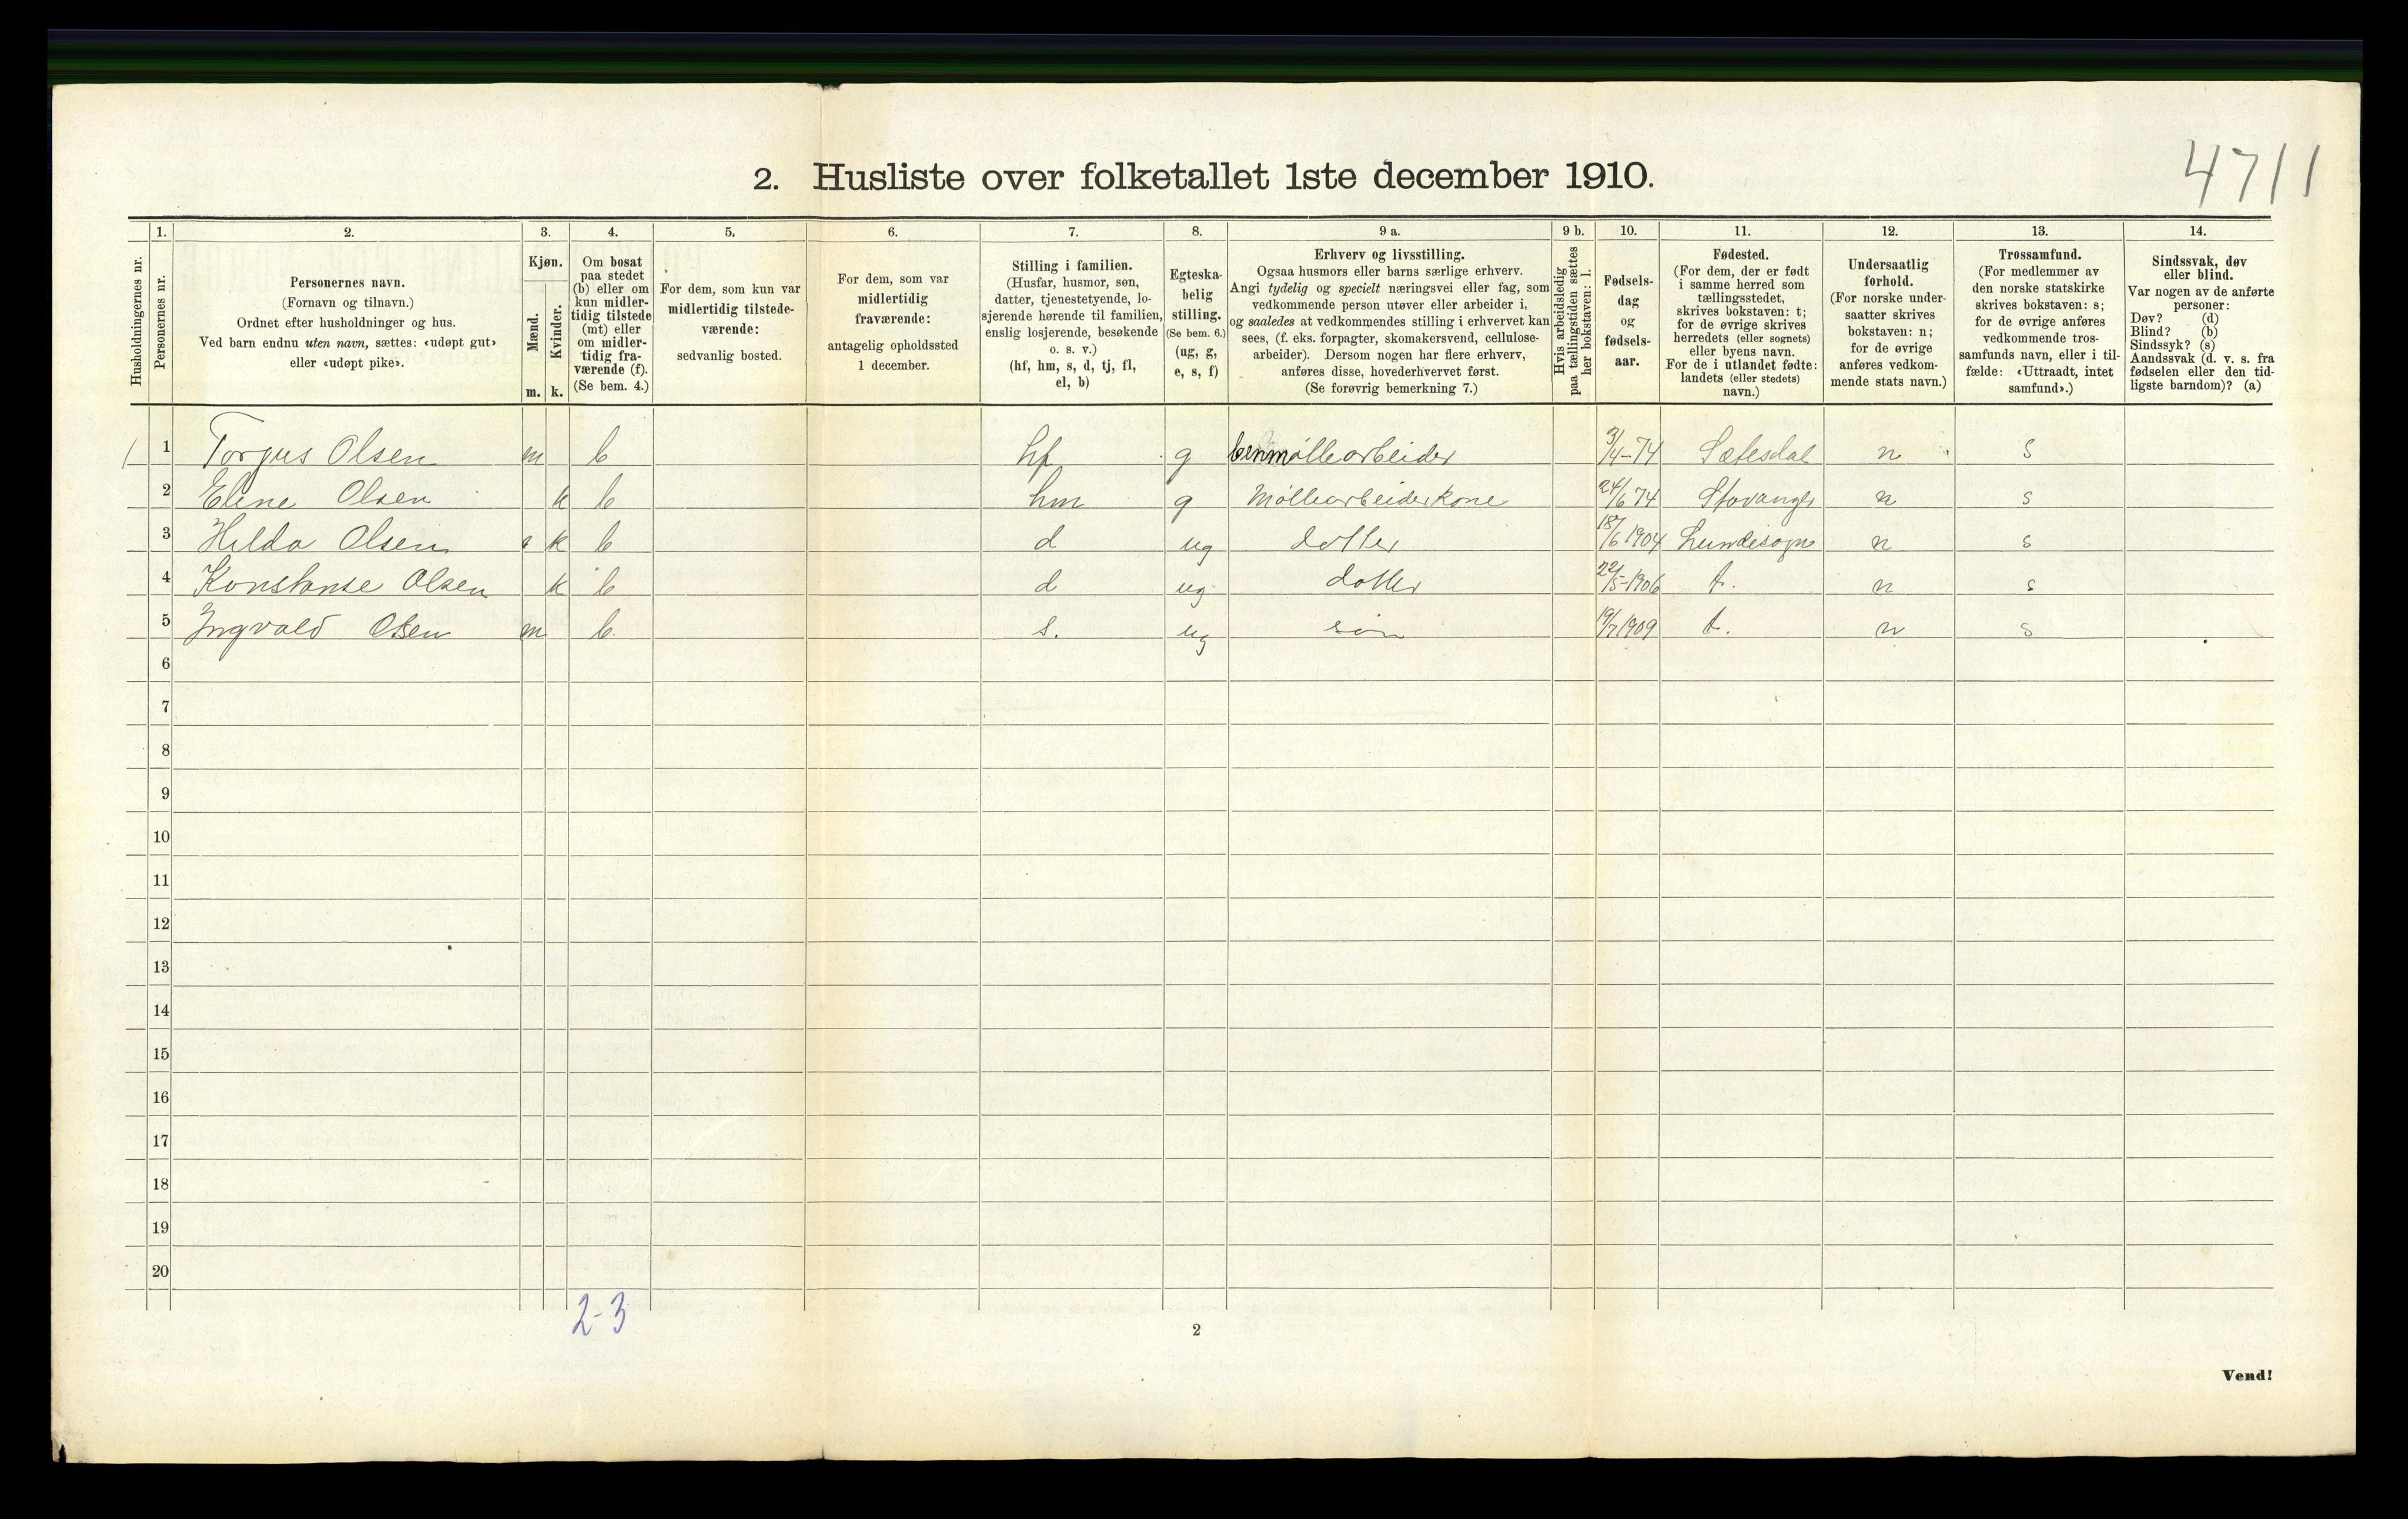 4711
2. Husliste over folketallet 1ste december 1910.
1. 2. 3. 4. 5. 6. 7. 8. 9 a. 9 b. 10. 11. 12. 13. 14.
Husholdningernes nr.
Personernes nr.
Personernes navn.
(Fornavn og tilnavn.)
Ordnet efter husholdninger og hus.
Ved barn endnu uten navn, sættes: «udøpt gut»
eller «udøpt pike».
Kjøn.
Mænd.
Kvinder.
m. k.
Om bosat
paa stedet
(b) eller om
kun midler-
tidig tilstede
(mt) eller
om midler-
tidig fra-
værende (f).
(Se bem. 4.)
For dem, som kun var
midlertidig tilstede-
værende:
sedvanlig bosted.
For dem, som var
midlertidig
fraværende:
antagelig opholdssted
1 december.
Stilling i familien.
(Husfar, husmor, søn,
datter, tjenestetyende, lo-
sjerende hørende til familien,
enslig losjerende, besøkende
o. s. v.)
(hf, hm, s, d, tj, fl,
el, b)
Egteska-
belig
stilling.
(Se bem. 6.)
(ug, g,
e, s, f)
Erhverv og livsstilling.
Ogsaa husmors eller barns særlige erhverv.
Angi tydelig og specielt næringsvei eller fag, som
vedkommende person utøver eller arbeider i,
og saaledes at vedkommendes stilling i erhvervet kan
sees, (f. eks. forpagter, skomakersvend, cellulose-
arbeider). Dersom nogen har flere erhverv,
anføres disse, hovederhvervet først.
(Se forøvrig bemerkning 7.)
Hvis arbeidsledig
paa tællingstiden sættes
her bokstaven: l.
Fødsels-
dag
og
fødsels-
aar.
Fødested.
(For dem, der er født
i samme herred som
tællingsstedet,
skrives bokstaven: t;
for de øvrige skrives
herredets (eller sognets)
eller byens navn.
For de i utlandet fødte:
landets (eller stedets)
navn.)
Undersaatlig
forhold.
(For norske under-
saatter skrives
bokstaven: n;
for de øvrige
anføres vedkom-
mende stats navn.)
Trossamfund.
(For medlemmer av
den norske statskirke
skrives bokstaven: s;
for de øvrige anføres
vedkommende tros-
samfunds navn, eller i til-
fælde: «Uttraadt, intet
samfund».)
Sindssvak, døv
eller blind.
Var nogen av de anførte
personer:
Døv? (d)
Blind? (b)
Sindssyk? (s)
Aandssvak (d. v. s. fra
fødselen eller den tid-
ligste barndom)? (a)
1 1 Torjus Olsen m b hf g benmøllearbeider 3/4-74 Sætesdal n s
2 Eline Olsen k b hm g Møllearbeiderkone 24/6 74 Stavanger n s
3 Hilda Olsen k b d ug datter 18/6 1904 Lundesogn n s
4 Konstanse Olsen k b d ug datter 22/5-1906 t. n s
5 Ingvald Olsen m b. s. ug søn 19/7 1909 t. n s
6
7
8
9
10
11
12
13
14
15
16
17
18
19
20
2-3
2
Vend!